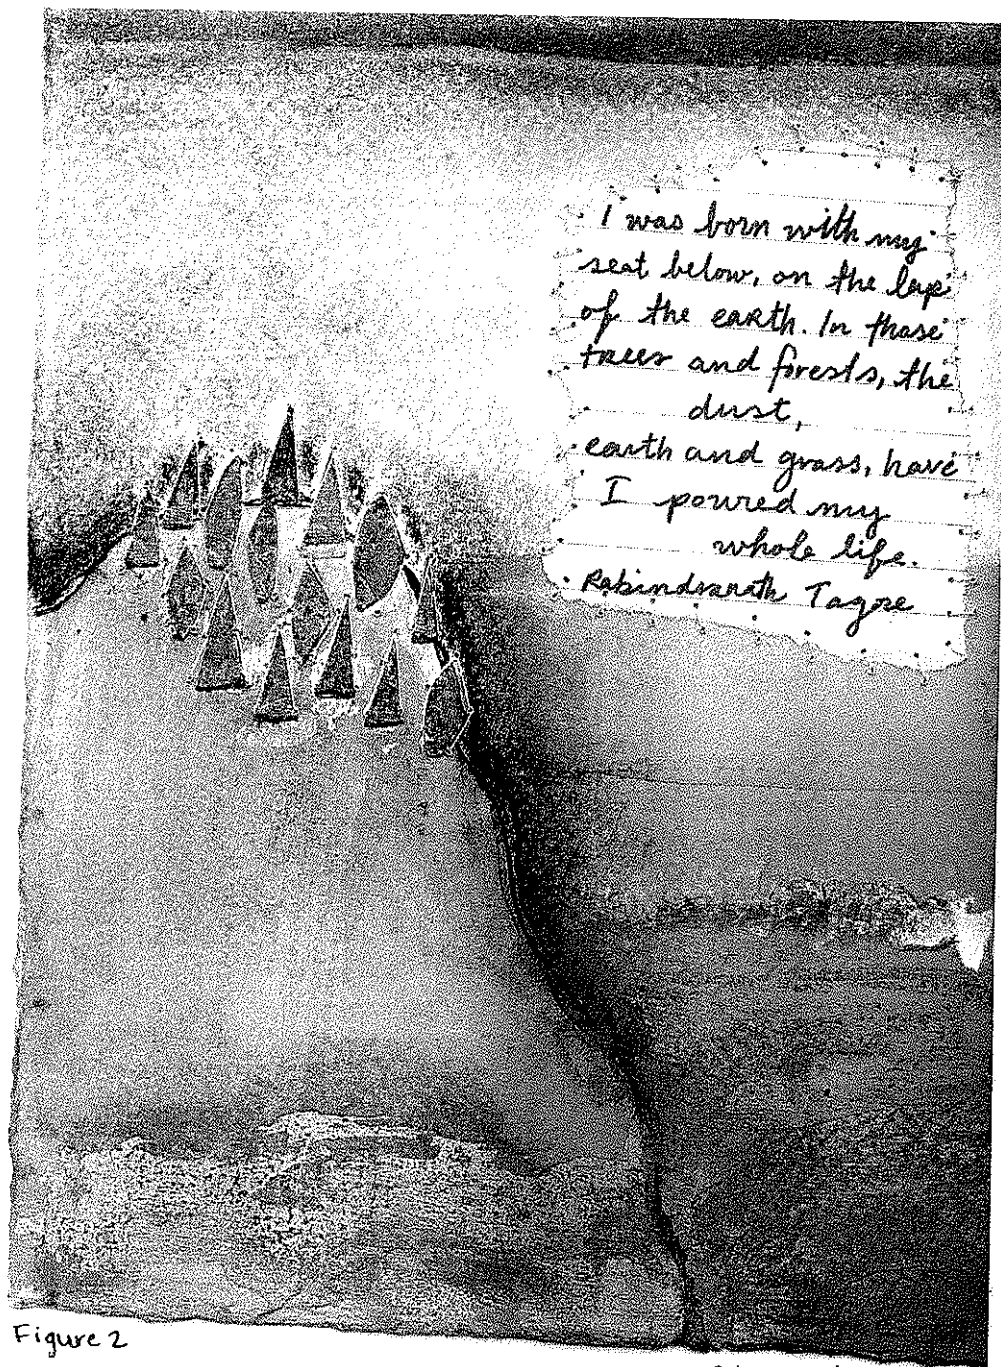 I was born with my
seat below, on the lap
of the earth. In those
trees and forests, the
dust,
earth and grass, have
I poured my
whole life.
Rabindranath Tagore
Figure 2